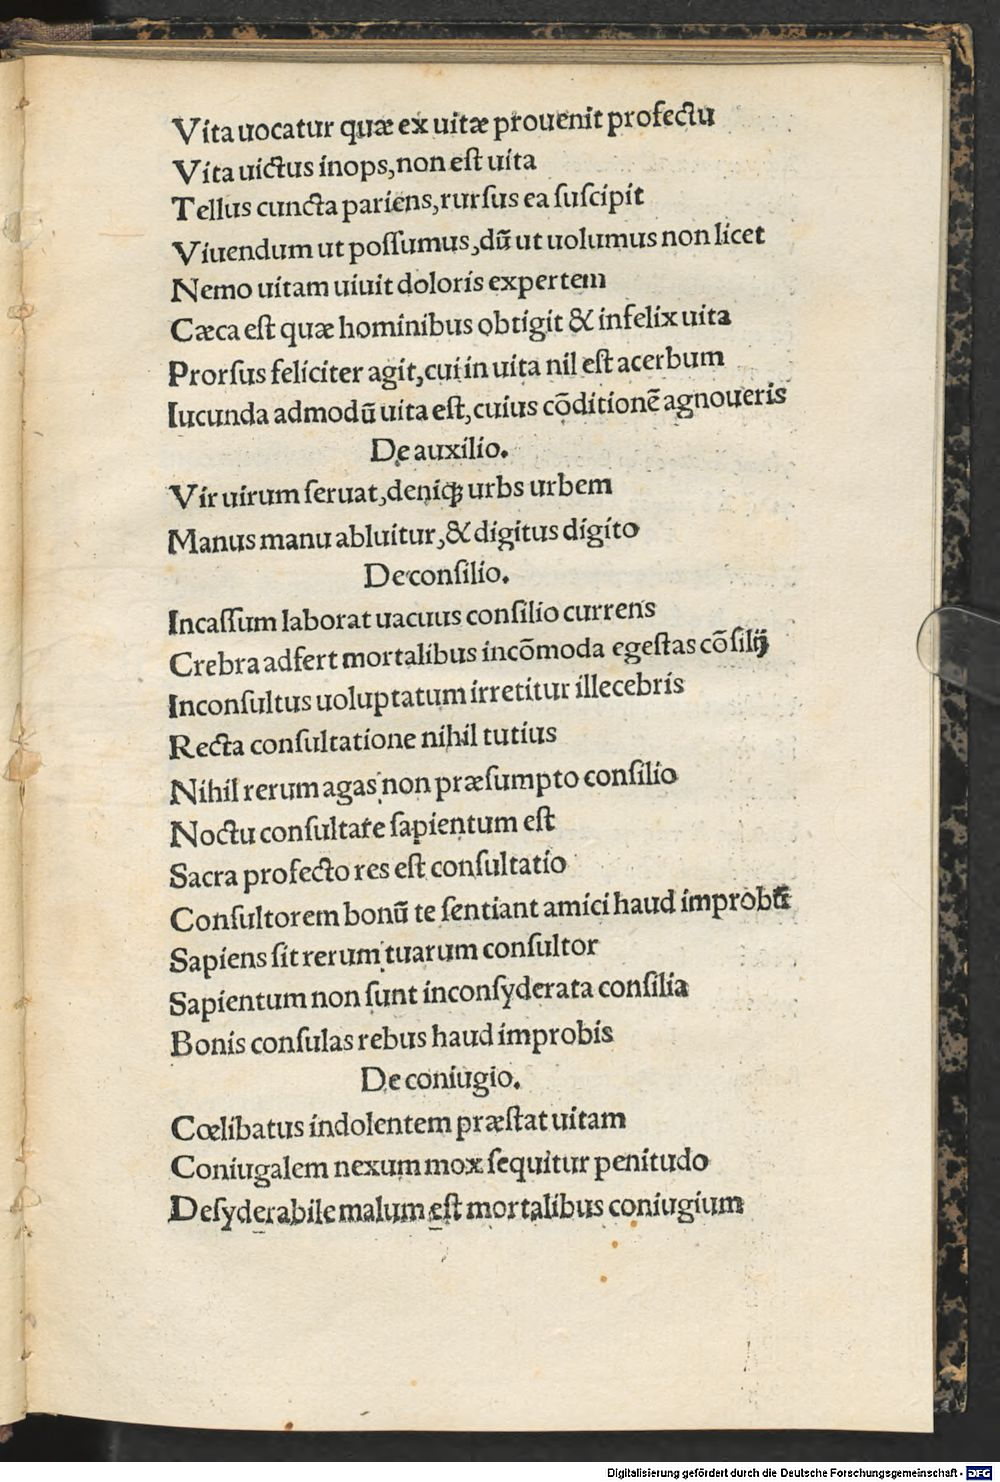 Vita uocatur quæ ex uitæ prouenit profectu
Vita uictus inops,non eſt uita
Tellus cuncta pariens,rurſus ea ſuſcipit
Viuendum ut poſſumus,dū ut uolumus non licet
Nemo uitam uiuit doloris expertem
Cæca eſt quæ hominibus obtigit & infelix uita
Prorſus feliciter agit,cui in uita nil eſt acerbum
Iucunda admodū uita eſt,cuius cōditionē agnoueris
De auxilio.
Vir uirum ſeruat,deniqꝫ urbs urbem
Manus manu abluitur,& digitus digito
De conſilio.
Incaſſum laborat uacuus conſilio currens
Crebra adfert mortalibus incōmoda egeſtas cōſilij
Inconſultus uoluptatum irretitur illecebris
Recta conſultatione nihil tutius
Nihil rerum agas non præſumpto conſilio
Noctu conſultare ſapientum eſt
Sacra profecto res eſt conſultatio
Conſultorem bonū te ſentiant amici haud improbū
Sapiens ſit rerum tuarum conſultor
Sapientum non ſunt inconſyderata conſilia
Bonis conſulas rebus haud improbis
De coniugio.
Cœlibatus indolentem præſtat uitam
Coniugalem nexum mox ſequitur penitudo
Deſyderabile malum eſt mortalibus coniugium
Digitalisierung gefördert durch die Deutsche Forschungsgemeinschaft - DFG